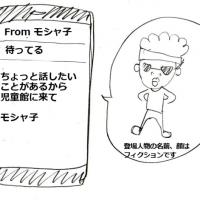 From モシャ子
待ってる
ちょっと話したい
ことがあるから
児童館に来て
モシャ子
登場人物の名前、顔は
フィクションです